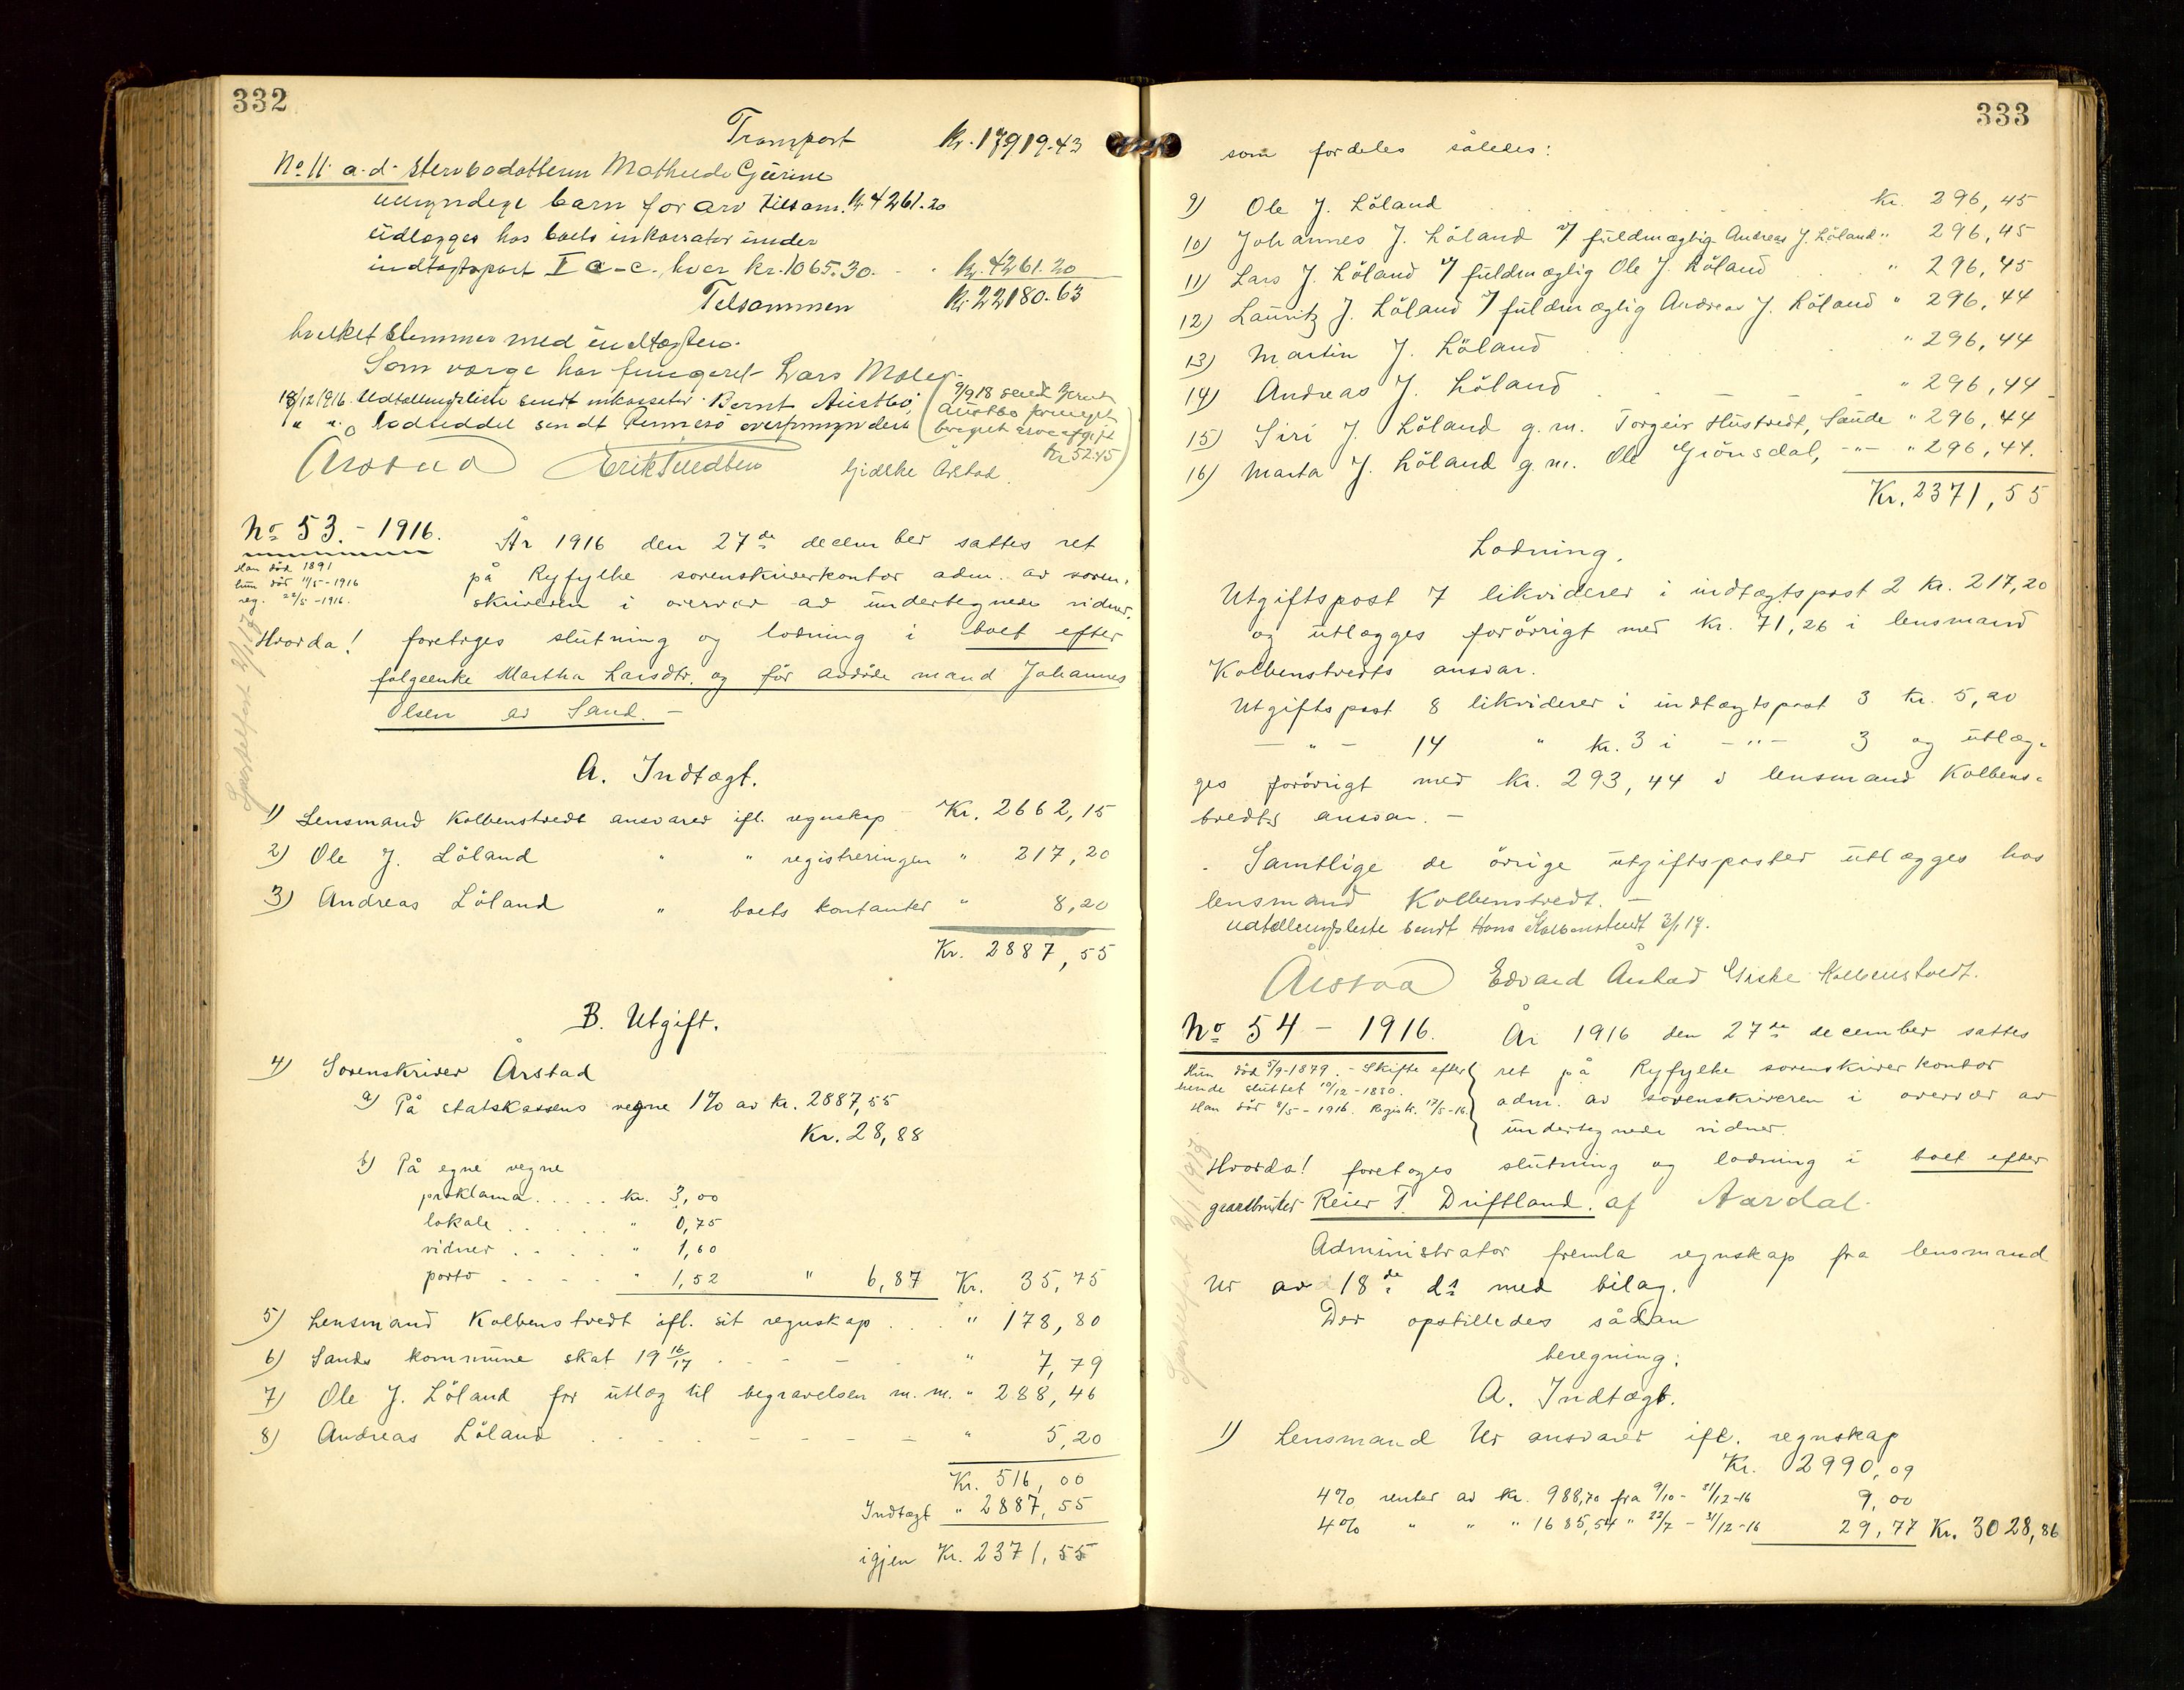 332
Transport Kr. 17919.43
No 11. a-d. Stervbodatteren Mathilde Gurine
umyndige barn for arv tilsam. kr 4261.20
udlægges hos boets inkassator under
indtægtspost I a-c. hver kr. 1065.30. Kr. 4261.20
Tilsammen Kr. 22180.63
hvilket stemmer med indtægten.
Som værge har fungeret Lars
18/12 1916. Udtællingsliste sendt inkassator Bernt Austbø.
" " Lodseddel sendt Rennesø overformynderi
(9/9 18 sendt Bernt
Austbø
beregnet arveafgift
Kr 52.45)
Årstad Gidske Årstad.
No 53. - 1916.
Han død 1891
hun død 11/5-1916
reg. 22/5-1916.
År 1916 den 27de december sattes ret
på Ryfylke sorenskriverkontor adm. av soren-
skriveren i overvær av undertegnede vidner.
Hvorda! foretoges slutning og lodning i boet efter
følgeenke Martha Larsdtr. og før avdøde mand Johannes
Olsen av Sand. -
A. Indtægt.
1) Lensmand Kolbenstvedt ansvarer ifl. regnskap Kr. 2662,15
2) Ole J. Löland " " registreringen " 217,20
3) Andreas Löland " boets kontanter " 8,20
Kr. 2887,55
B. Utgift.
4) Sorenskriver Årstad
a) På statskassens vegne 1% av kr. 2887,55
Kr. 28,88
b) På egne vegne
proklama ..... kr. 3,00
lokale ..... " 0,75
vidner .... " 1,60
porto ..... " 1,52 " 6,87 Kr. 35,75
5) Lensmand Kolbenstvedt ifl. sit regnskap ... " 178,80
6) Sands kommune skat 19 16/17 . - - - . " 7,79
7) Ole J. Löland for utlæg til begravelsen m. m. " 288,46
8) Andreas Löland . . - - - - - " 5,20
Kr. 516,00
Indtægt " 2887,55
igjen Kr. 2371,55
333
som fordeles således:
9) Ole J. Löland kr. 296,45
10) Johannes J. Löland v/ fuldmægtig Andreas J. Löland " 296,45
11) Lars J. Löland v/ fuldmægtig Ole J. Löland " 296,45
12) Lauritz J. Löland v/ fuldmægtig Andreas J. Löland " 296,44
13) Martin J. Löland " 296,44
14) Andreas J. Löland " 296,44
15) Siri J. Löland g. m. Torgeir Hustvedt, Saude " 296,44
16) Marta J. Löland g. m. Ole Grönsdal, -"- " 296,44.
Kr. 2371,55
Lodning.
Utgiftspost 7 likviderer i indtægtspost 2 kr. 217,20
og utlægges forövrigt med kr. 71,26 i lensmand
Kolbenstvedts ansvar.
Utgiftspost 8 likviderer i indtægtspost 3 kr. 5,20
- " - 14 " kr. 3 i -"- 3 og utlæg-
ges forövrigt med kr. 293,44 i lensmand Kolbens-
tvedts ansvar. -
Samtlige de övrige utgiftsposter utlægges hos
lensmand Kolbenstvedt. -
Udtællingsliste sendt Hans Kolbenstvedt 3/1 17.
Årstad Edvard Årstad Giske Kolbenstvedt.
No 54 - 1916.
Hun död 5/9-1879. - Skifte efter
hende sluttet 10/12-1880.
Han död 8/5-1916. Regist. 17/5-16.
År 1916 den 27de december sattes
ret på Ryfylke sorenskriverkontor
adm. av sorenskriveren i overvær av
undertegnede vidner.
Hvorda! foretoges slutning og lodning i boet efter
gaardbruker Reier T. Driftland. af Aardal.
Administrator fremla regnskap fra lensmand
Ur av 18de ds med bilag.
Der opstilledes sådan
beregning:
A. Indtægt.
1) Lensmand Ur ansvarer ifl. regnskap
Kr. 2990,09
4% renter av kr. 988,70 fra 9/10 - 31/12-16 9,00
4% " " " 1685,54 " 22/7 - 31/12-16 29,77 Kr. 3028,86